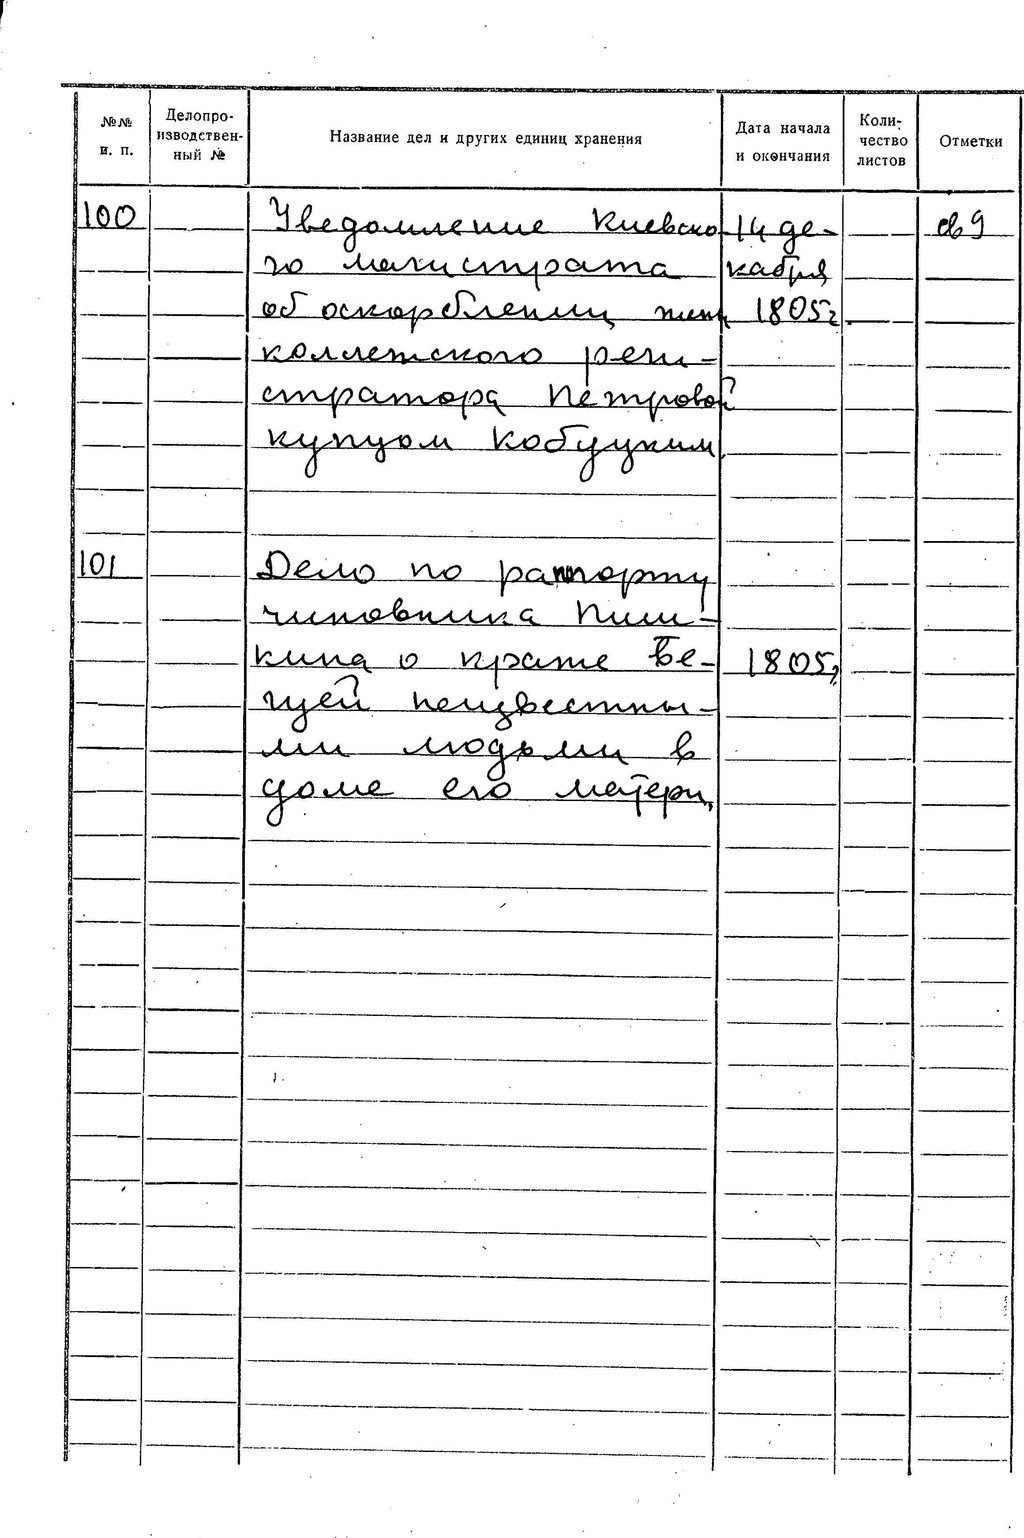 №№ и. п.
Делопро-изводствен-ный №
Название дел и других единиц хранения
Дата начала и окончания
Коли-чество листов
Отметки
100 Уведомление Киевско- 14 де- св 9
го магистрата кабря
об оскорблении жены 1805г.
коллежского реги-
стратора Петровой
купцом Кобуцким.
101 Дело по раппорту
чиновника Пиш-
кина о краже ве- 1805г.
щей неизвестны-
ми людьми в
доме его матери.